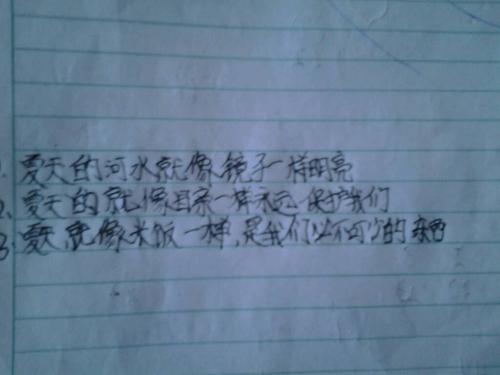 1. 夏天的河水就像镜子一样明亮
2. 夏天的就像母亲一样永远保护我们
3. 夏天就像米饭一样,是我们必不可少的东西